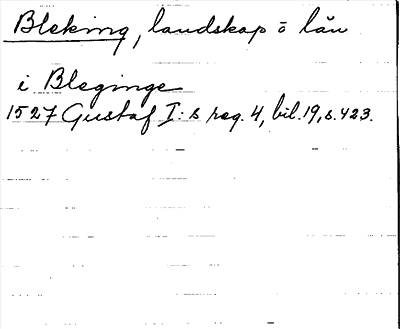 Bleking, landskap o län
i Bleginge
1527 Gustaf I:s reg. 4, bil. 19, s. 423.